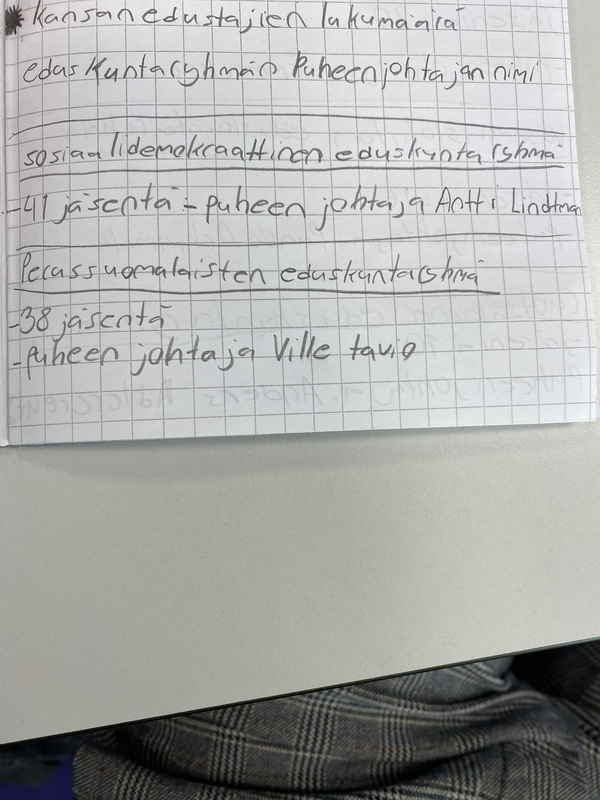 kansanedustajien lukumäärä
eduskuntaryhmän Puheenjohtajan nimi
sosiaalidemokraattinen eduskuntaryhmä
-41 jäsentä - puheen johtaja Antti Lindtman
Perussuomalaisten eduskuntaryhmä
-38 jäsentä
-puheen johtaja Ville tavio